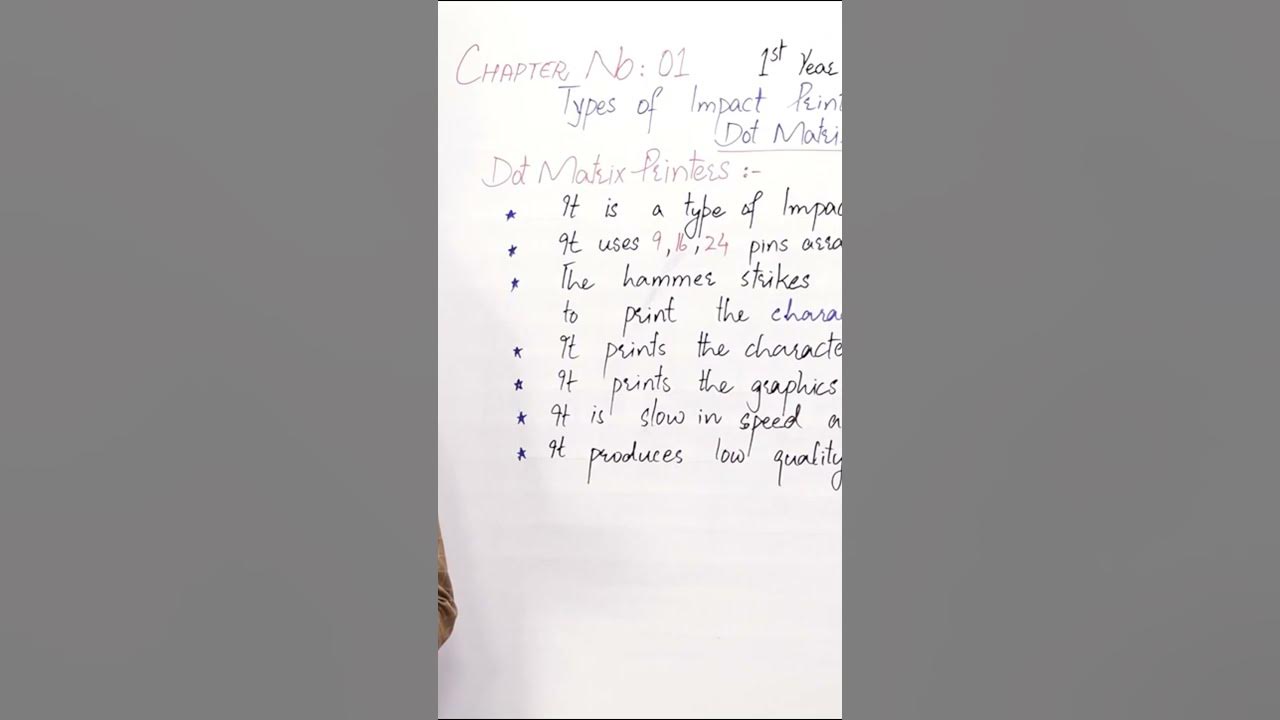 CHAPTER No: 01 1st Year
Types of Impact Print
Dot Matri
Dot Matrix Printers :-
★ It is a type of Impac
★ It uses 9, 16, 24 pins arra
★ The hammer strikes
to print the charac
★ It prints the characte
★ It prints the graphics
★ It is slow in speed a
★ It produces low quality